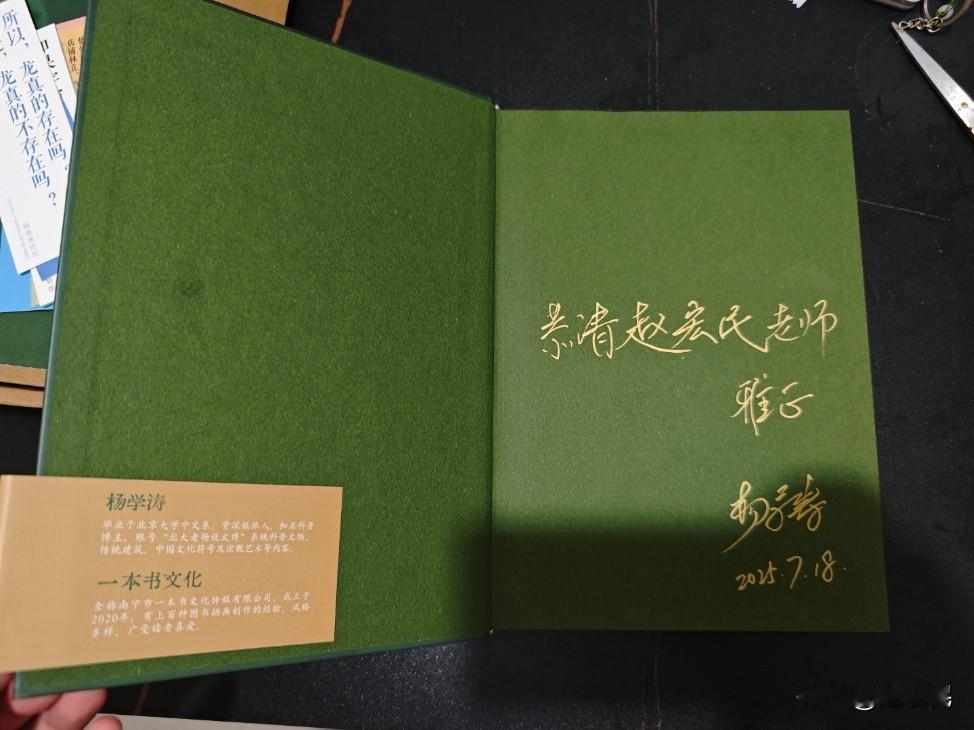 所以，龙真的存在吗？
龙真的不存在吗？
恭请赵宏民老师
雅正
杨学涛
2025.7.18.
杨学涛
毕业于北京大学中文系，资深媒体人，知名科普
博主，账号“北大老杨说文博”系统科普文物、
传统建筑、中国文化符号及宗教艺术等内容。
一本书文化
全称南宁市一本书文化传媒有限公司，成立于
2020年，有上百种图书插画创作的经验，风格
多样，广受读者喜爱。